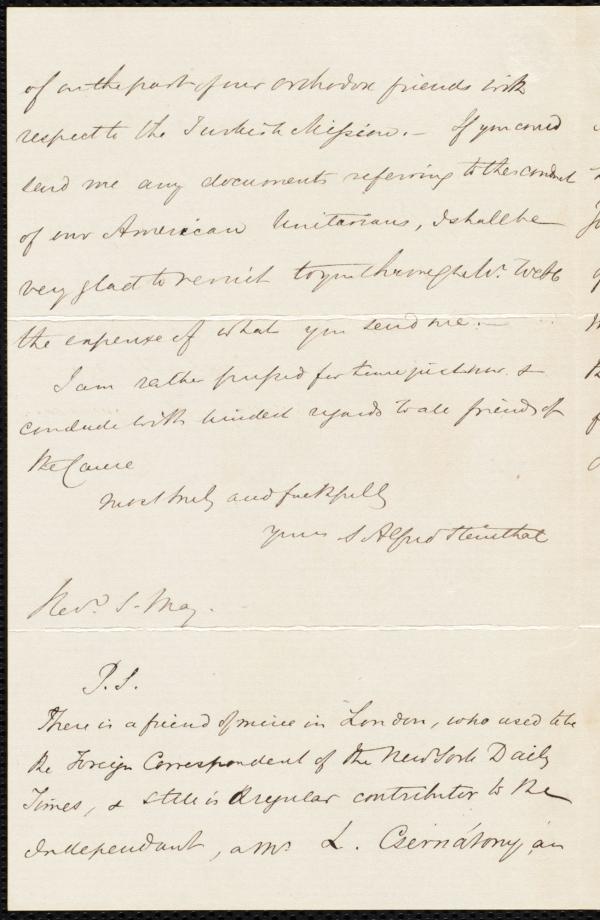 of on the part of our orthodox friends with
respect to the Turkish Mission. — If you could
send me any documents referring to the conduct
of our American Unitarians, I shall be
very glad to remit to you through Mr. Webb
the expense of what you send me. —
I am rather pressed for time just now &
conclude with kindest regards to all friends of
the Cause
most truly and faithfully
yours S Alfred Steinthal
Revd. S. May.
P.S.
There is a friend of mine in London, who used to be
the Foreign Correspondent of the New York Daily
Times, & still is a regular contributor to the
Independant, a Mr. L. Csernátony, an